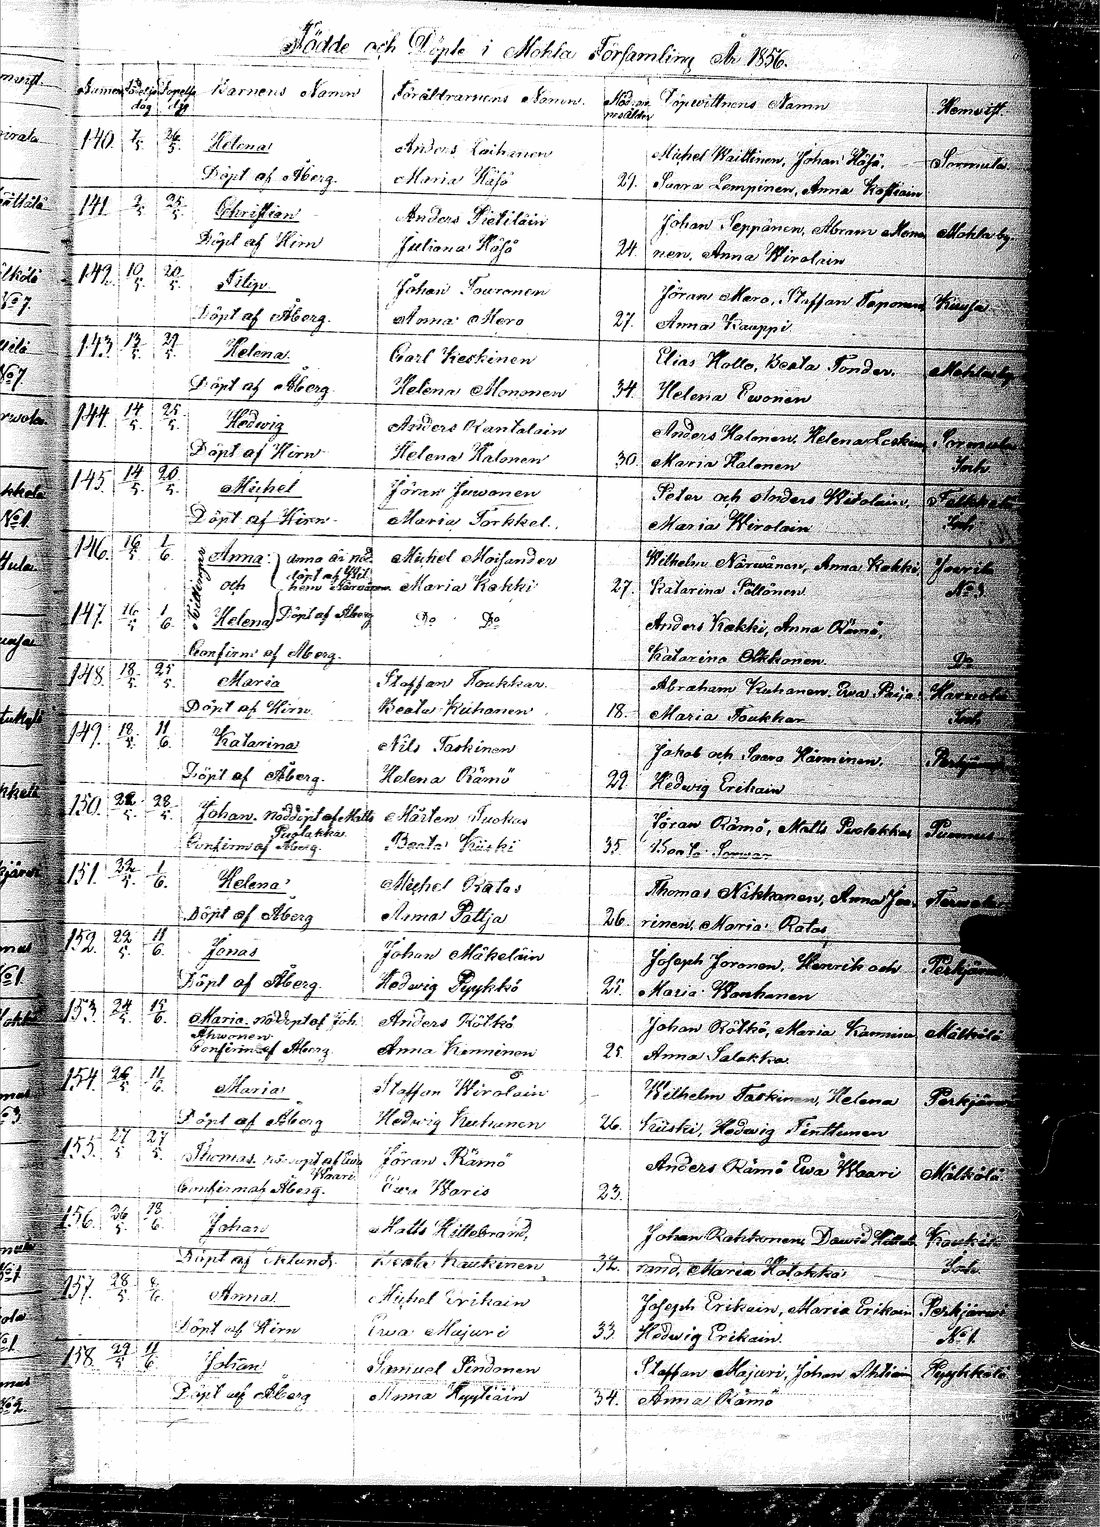 Födde och Döpte i Mohla Församling År 1856.
Barnens Namn Föräldrarnens Namn. Döpwittnens Namn Hemvist.
140. 7/5 26/5 Helena Anders Laihanen Michel Waittinen, Johan Häjö Sormula
Döpt af Åberg. Maria Häjö 29. Saara Lempinen, Anna
141. 2/5 25/5 Christian Anders Pietiläin Johan Seppänen, Abram Mono- Mohla by.
Döpt af Hirn Juliana Häjö 24. nen, Anna Wirolain
142. 10/5 20/5 Filip Johan Touronen Jöran Mero, Staffan Taponen, Kuusa
Döpt af Åberg. Anna Mero 27. Anna Kauppi
143. 13/5 29/5 Helena Carl Keskinen Elias Hollo, Beata Tonder, Mohla by
Döpt af Åberg Helena Mononen 34. Helena Ewonen
144. 14/5 25/5 Hedwig Anders Rantalain Anders Halonen, Helena Sormula
Döpt af Hirn Helena Halonen 30. Maria Halonen Inh
145. 14/5 20/5 Michel Jöran Juwonen Peter och Anders Wirolain,
Döpt af Hirn Maria Torkkel. Maria Wirolain Inh
146. 16/5 1/6 Anna Anna är nöd- Michel Moisander Wilhelm Närwänen, Anna Kakki
döpt af Wil-
Twillingar och helm Närwänen Maria Kakki 27. Katarina Pöllönen No 3.
147. 16/5 1/6 Helena Döpt af Åberg Do Do Anders Kakki, Anna Rämö,
Confirm. af Åberg. Katarina Olkkonen. Do
148. 18/5 25/5 Maria Staffan Toukkar Abraham Kuhanen, Ewa
Döpt af Hirn Beata Kuhanen 18. Maria Toukkar Inh
149. 18/5 11/6 Katarina Nils Taskinen Jakob och Saara Härminen, Perkjärwi
Döpt af Åberg. Helena Rämö 29. Hedwig Erikain
150. 22/5 28/5 Johan. nöddöpt af Matts Mårten Tuokus Jöran Rämö, Matts Puolakka Punnus
Puolakka
Confirm af Åberg. Beata Kiiski 35. Beata
151. 22/5 1/6 Helena Michel Ratas Thomas Näkkanen, Anna Joo-
Döpt af Åberg Anna Pattja 26. rinen, Maria Ratas
152. 22/5 11/6 Jonas Johan Mäkeläin Joseph Joronen, Henrik och Perkjärwi
Döpt af Åberg. Hedwig Pyykkö 25. Maria Wauhanen
153. 24/5 15/6 Maria. nöddöpt af Joh. Anders Rölkö Johan Rölkö, Maria Kanninen Mälkölä
Ahwonen
Confirm af Åberg. Anna Kenninen 25. Anna Salakka
154. 26/5 11/6 Maria Staffan Wirolain Wilhelm Taskinen, Helena Perkjärwi
Döpt af Åberg Hedwig Kuhanen 26. Kiiski, Hedwig Tinttunen
155. 27/5 27/5 Thomas. nöddöpt af Ewa Jöran Rämö Anders Rämö Ewa Waari Mälkölä
Waari
Confirm af Åberg. Ewa Waris 23.
156. 26/5 18/6 Johan Matts Hillebrand, Johan Rahkonen, David Hilleb-
Döpt af Eklund. Beata Kaukinen 32. rand, Maria Hatakka Inh.
157. 28/5 8/6 Anna Michel Erikain Joseph Erikain, Maria Erikain Perkjärwi
Döpt af Hirn Ewa Majuri 33. Hedwig Erikain. No 1.
158. 29/5 11/6 Johan Samuel Pindonen Staffan Majuri, Johan Ahtiain Pyykkölä
Döpt af Åberg Anna Kyytiäin 34. Anna Rämö